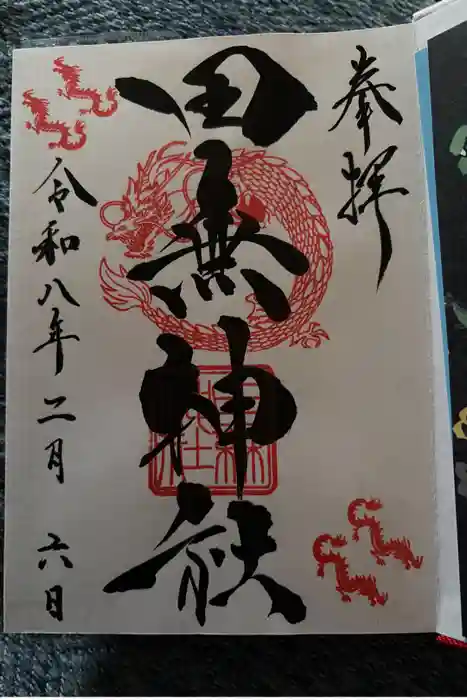 奉拝
田無神社
令和八年二月六日